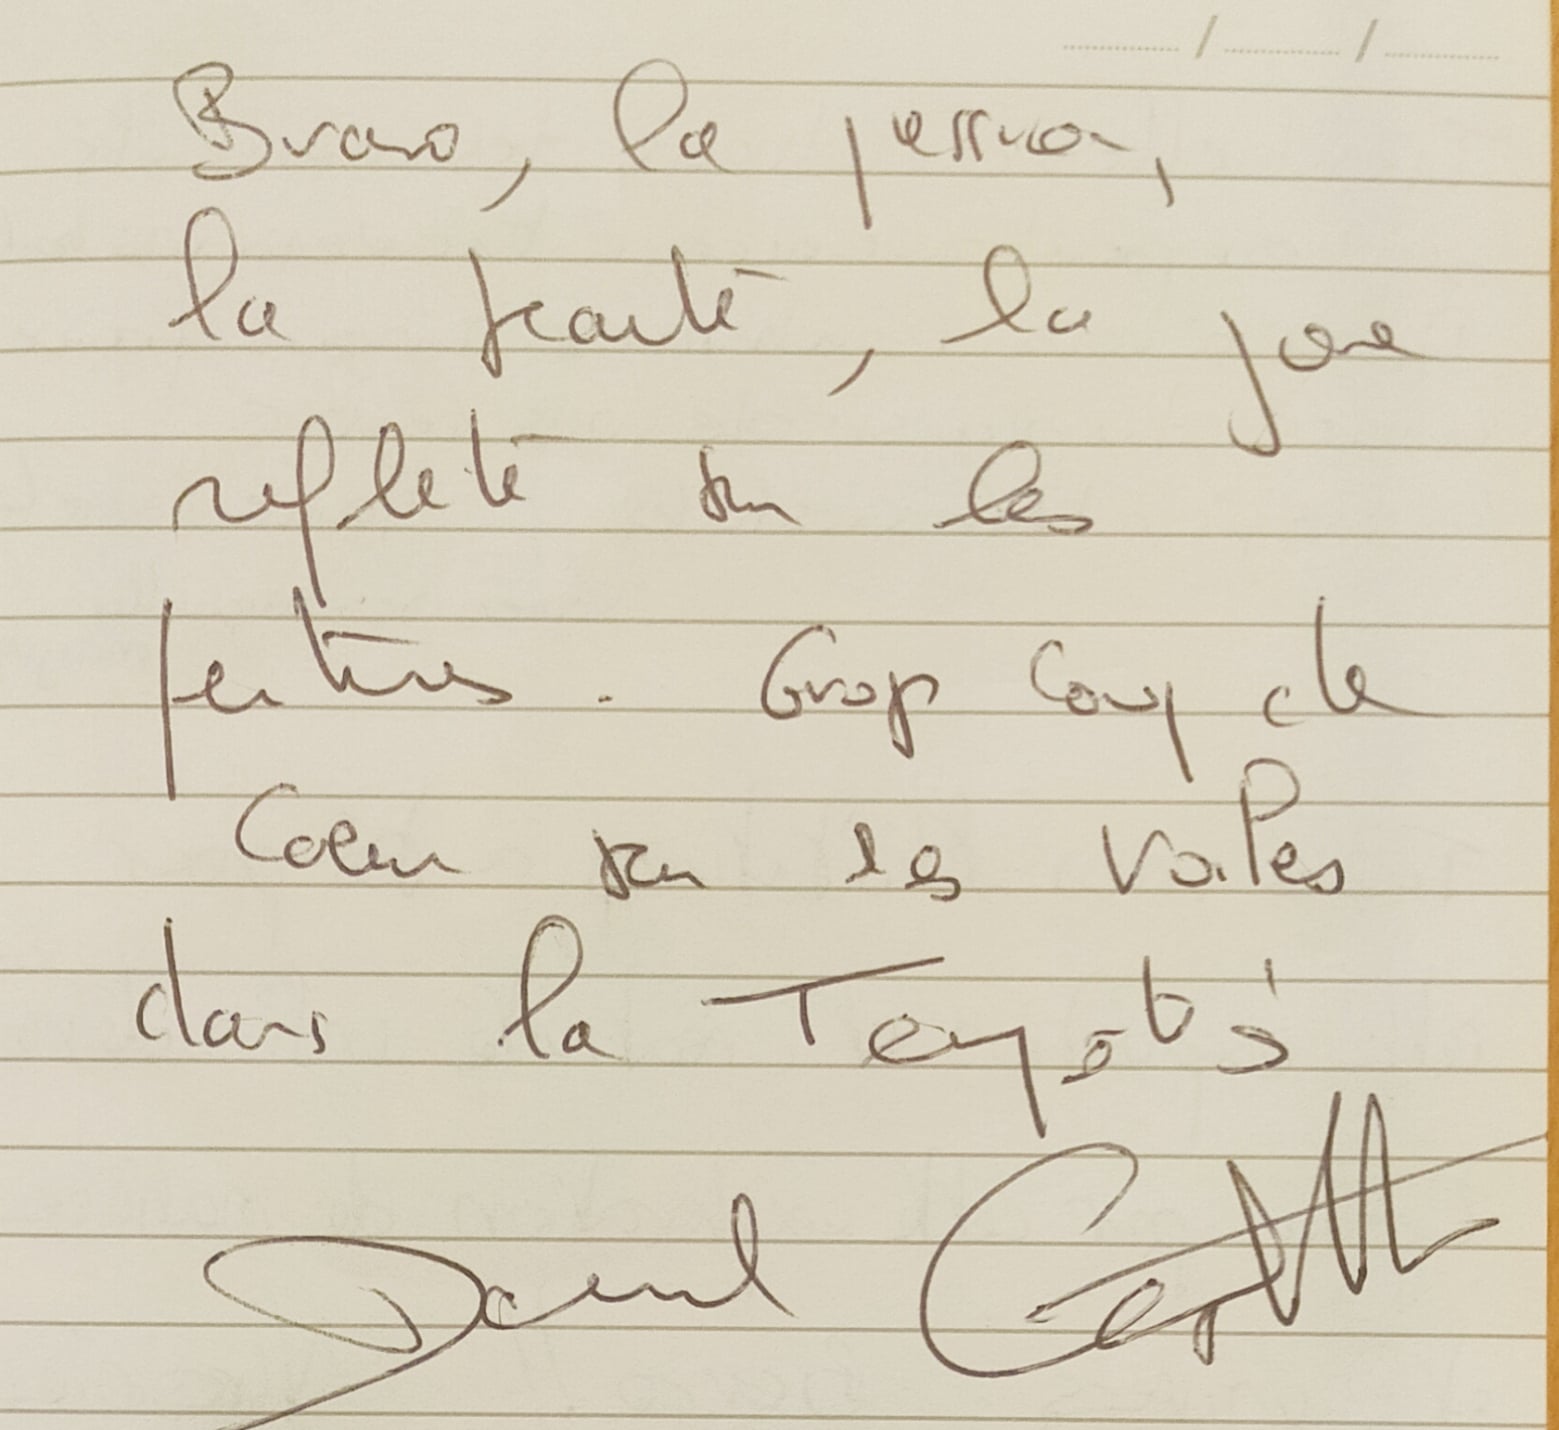 Bravo, la passion,
la beauté, la joie
refleté sur les
peintures. Gros Coup de
Coeur sur les Voiles
dans la Tempête
Daniel